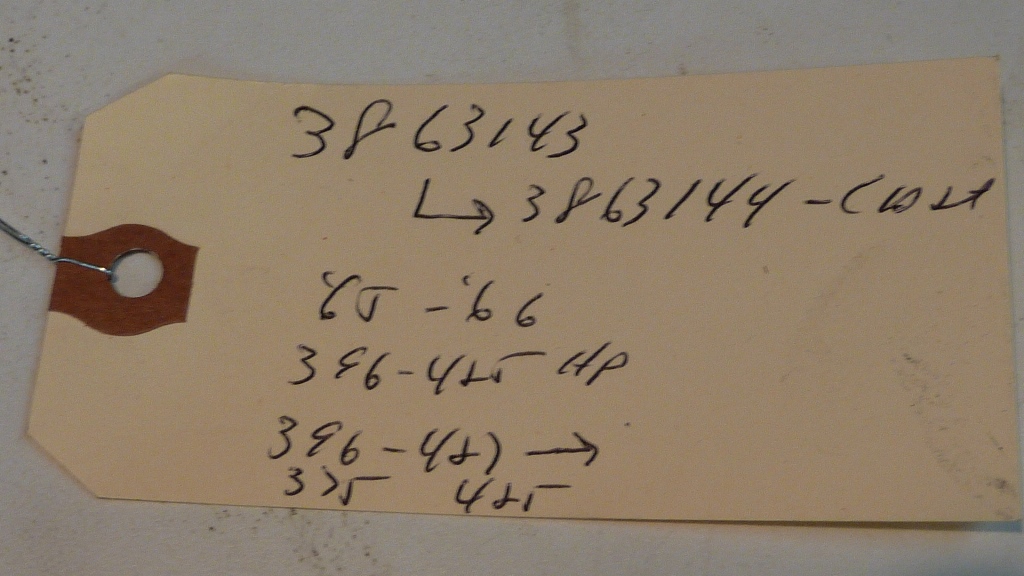 3863143
↳ 3863144 - Cast
'65 - '66
396 - 425 HP
396 - 427 →
375 425